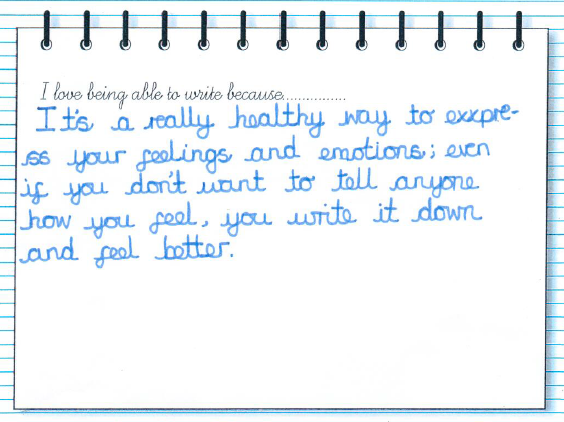 I love being able to write because...............
It's a really healthy way to exxpre-
ss your feelings and emotions; even
if you don't want to tell anyone
how you feel, you write it down
and feel better.